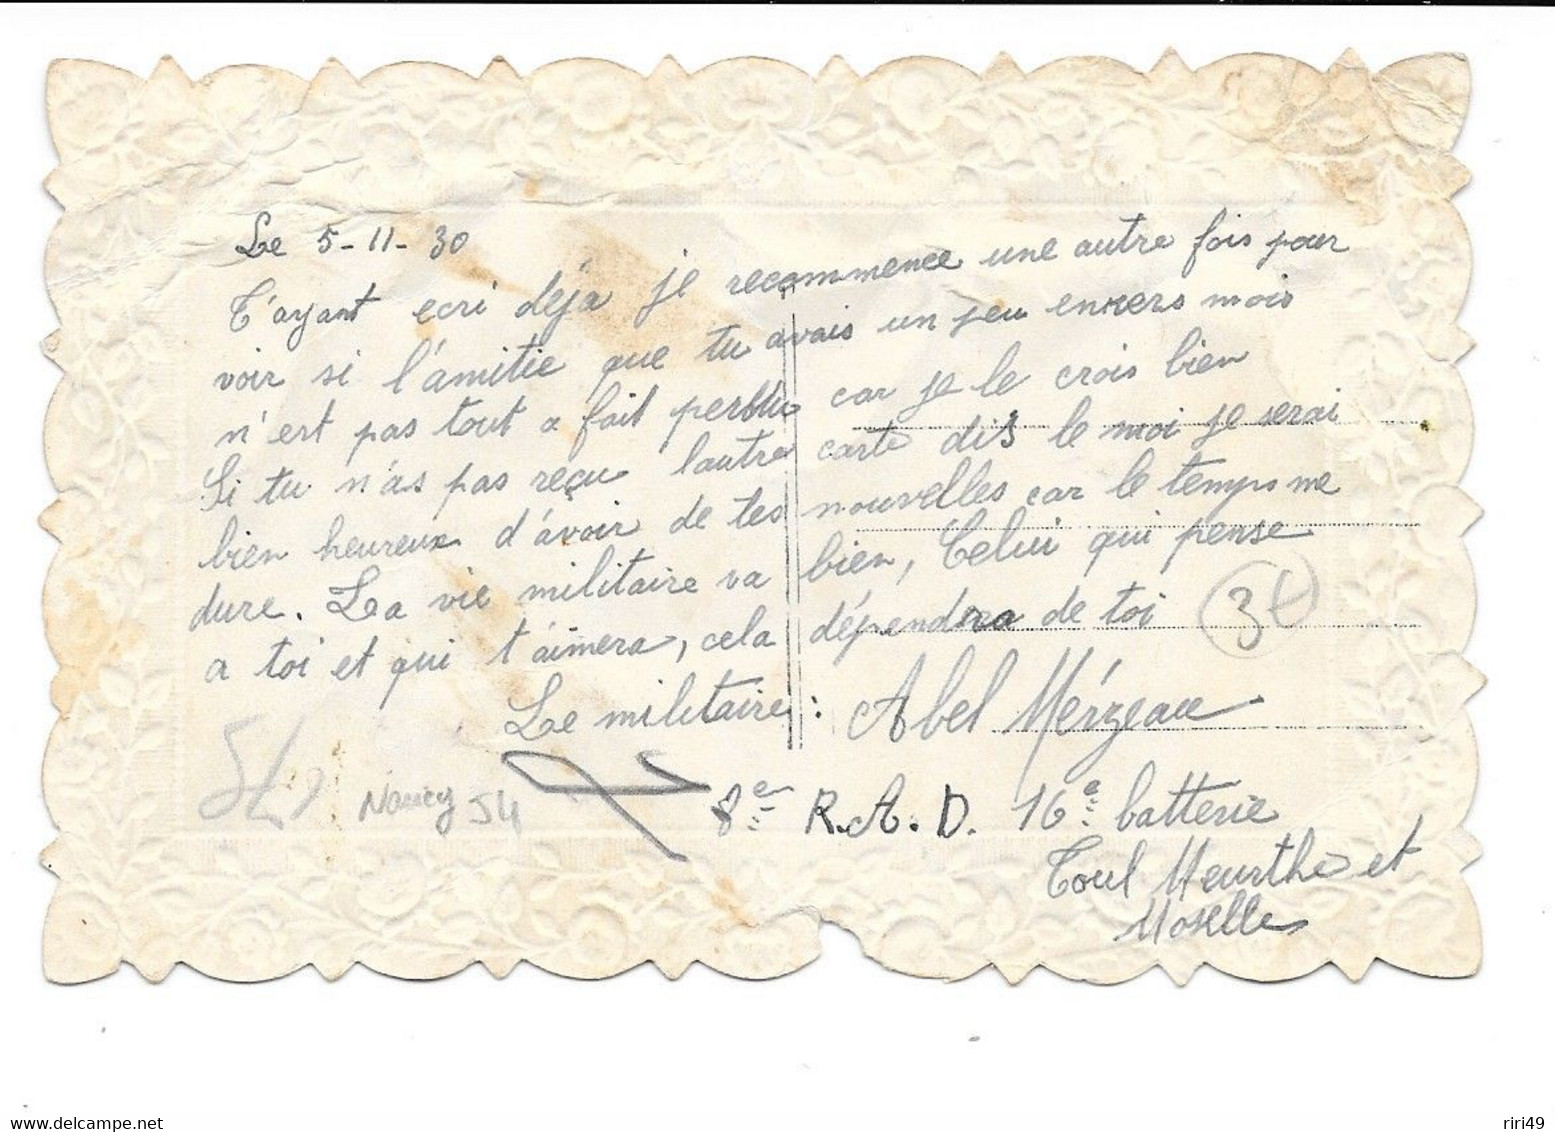 Le 5-11-30
T'ayant ecri déja je recommence une autre fois pour
voir si l'amitie que tu avais un peu envers mois
n'est pas tout a fait perdu car je le crois bien
Si tu n'as pas reçu l'autre carte dis le moi je serai
bien heureux d'avoir de tes nouvelles car le temps me
dure. La vie militaire va bien, Celui qui pense
a toi et qui t'aimera, cela dépendra de toi
Le militaire: Abel Mérzeau
8e R.A.D. 16e batterie
Toul Meurthe et
Moselle
54
Nancy 54
3€
riri49
delcampe.net